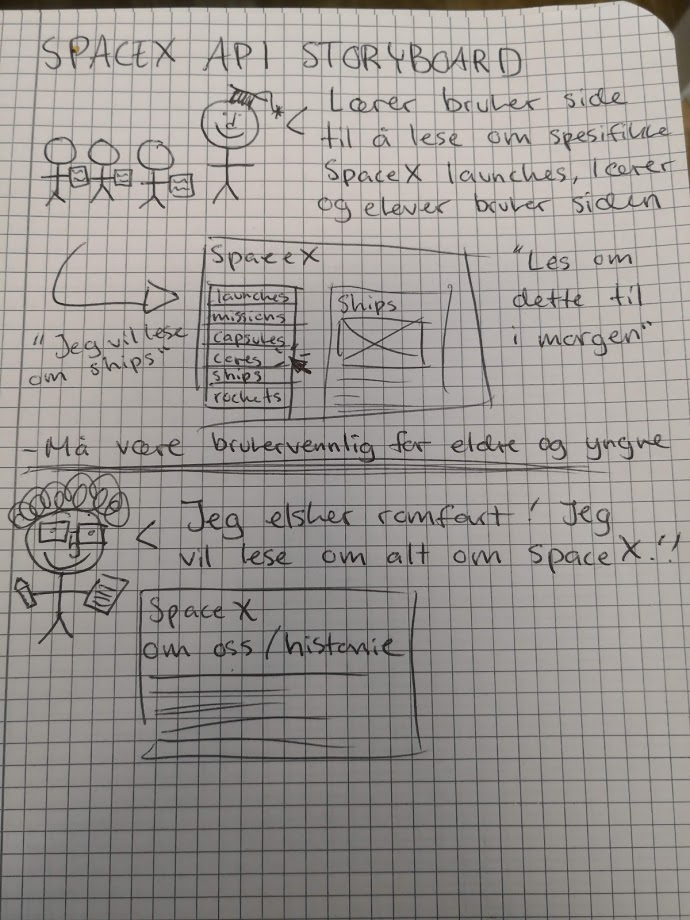 SPACEX API STORYBOARD
Lærer bruker side
til å lese om spesifikke
SpaceX launches, lærer
og elever bruker siden
SpaceX
launches
missions
capsules
cores
ships
rockets
Ships
"Les om
dette til
i morgen"
"Jeg vil lese
om ships"
- Må være brukervennlig for eldre og yngre
Jeg elsker romfart! Jeg
vil lese om alt om SpaceX."
SpaceX
om oss/historie